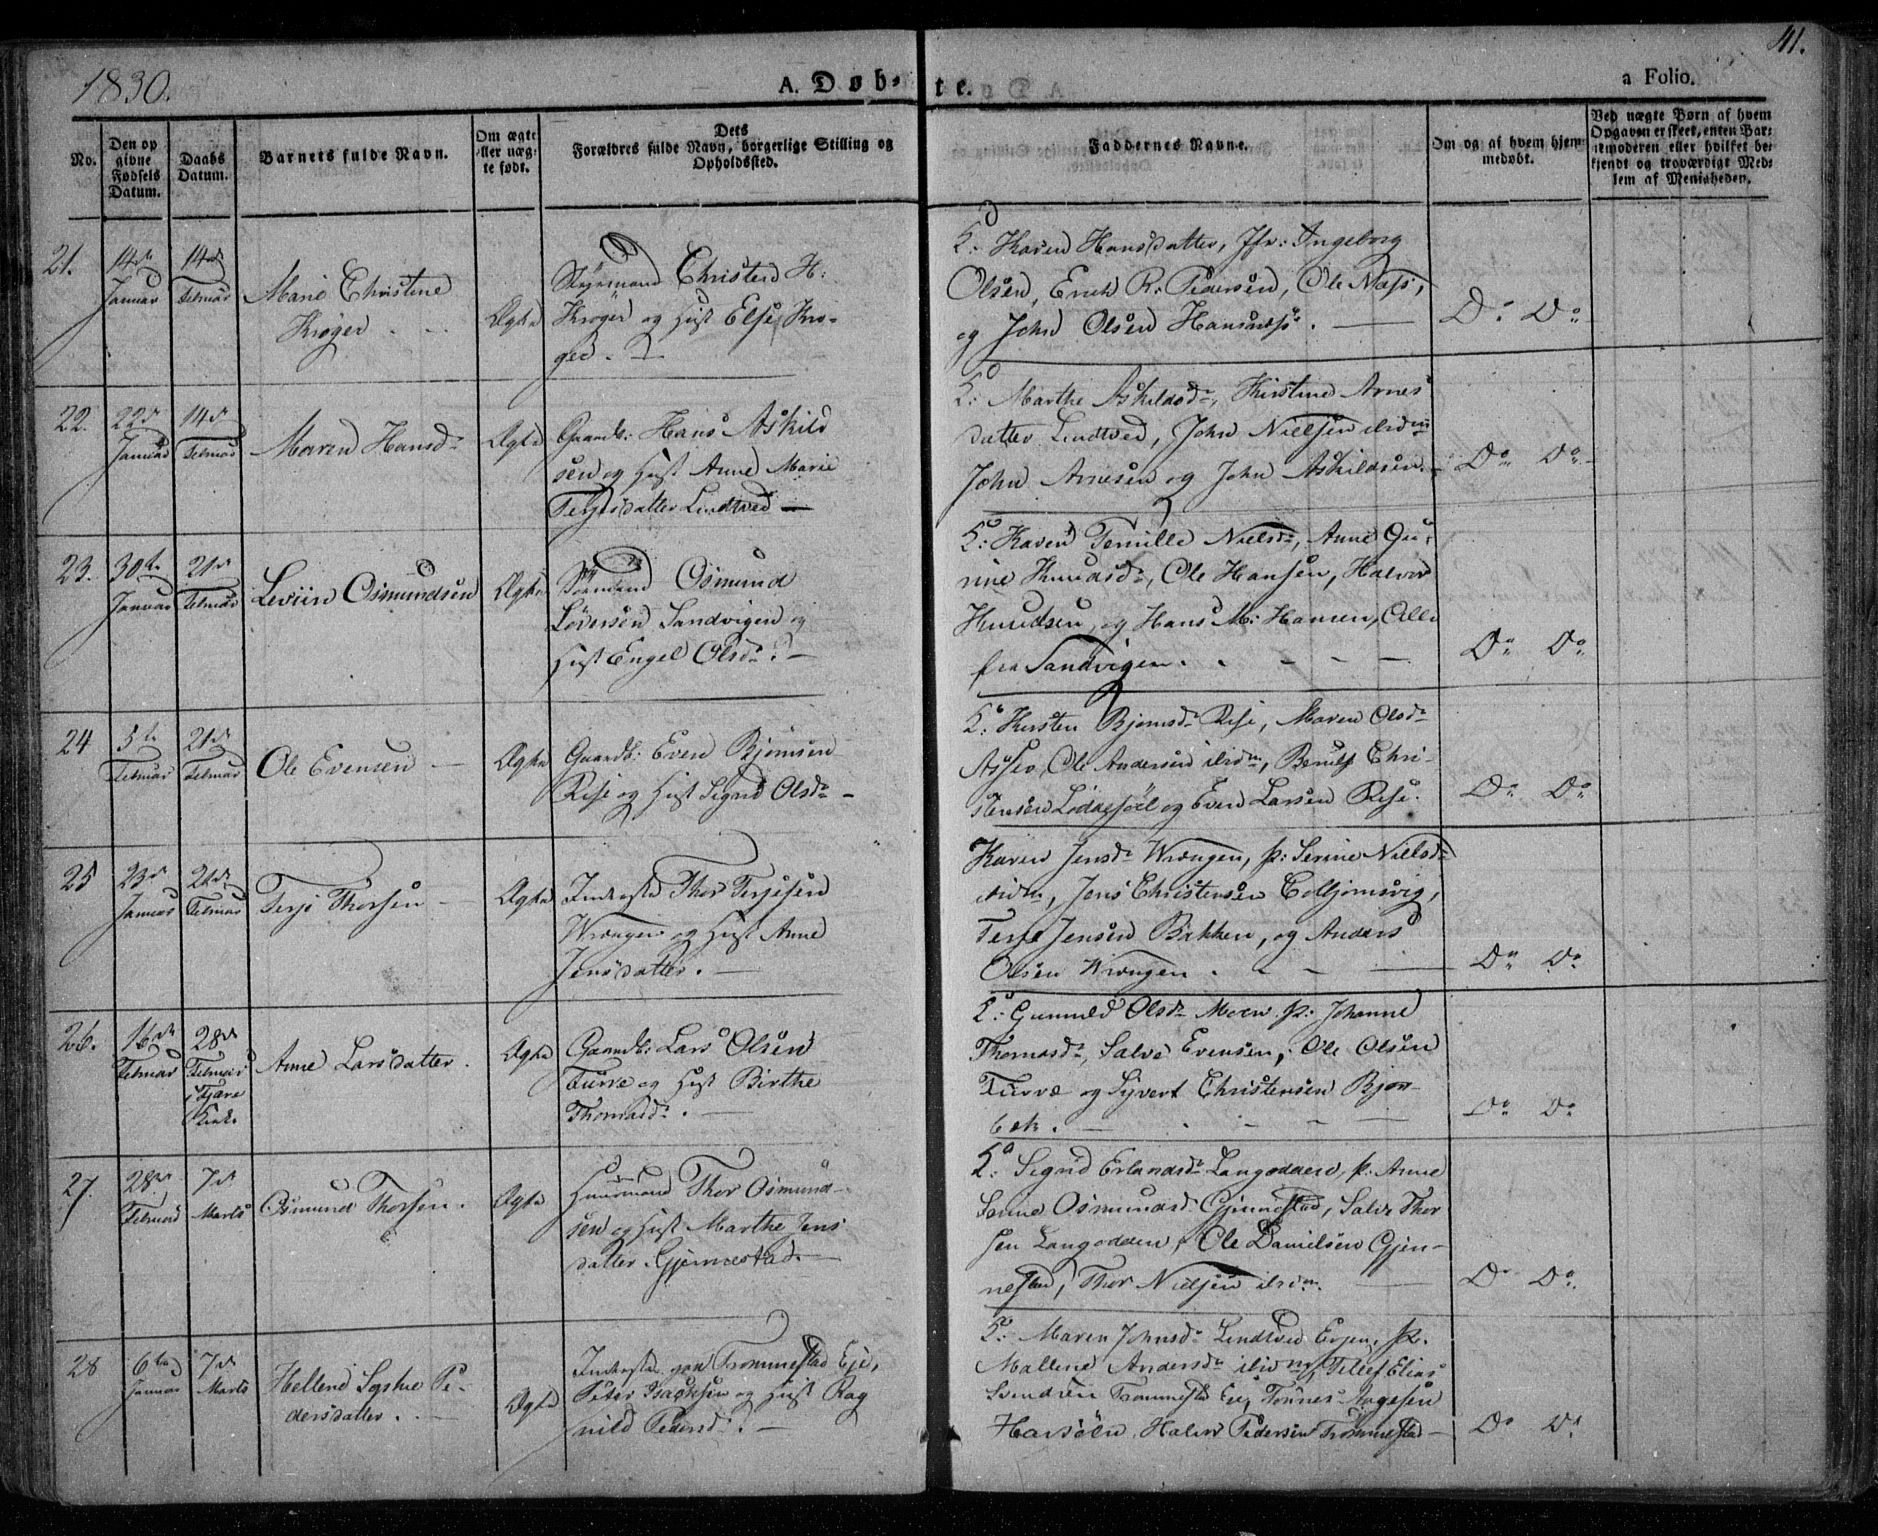 1830.
A. Døb-
te.
a Folio.
41.
No.
Den op
givne
Fødsels
Datum.
Daabs
Datum.
Barnets fulde Navn.
Om ægte
eller næg-
te født.
Dets
Forældres fulde Navn, borgerlige Stilling og
Opholdssted.
Faddernes Navne.
Om og af hvem hjem-
medøbt.
Ved uægte Børn af hvem
Opgaven er skeet, enten Bar-
nemoderen eller hvilket be-
kjendt og troværdigt Med-
lem af Menigheden.
21.
14de
Januar
14de
Februar
Marie Christine
Krøger
Ægte
Styrmand Christen H:
Krøger og Hust Else Krø-
ger.
K: Karen Hansdatter, Jfr: Ingeborg
Olsen, Erich R. Pedersen, Ole Næss,
og John Olsen Hansnæss.
Do Do
22.
22de
Januar
14de
Februar
Maren Hansdr
Ægte
Gaardb: Hans Askild
sen og Hust Anne Marie
Terjesdatter Lindtved
K: Marthe Askildsdr, Kirstine Arnes
datter Lindtved, John Nielsen ibidm
John Arnesen og John Askildsen.
Do Do
23.
30te
Januar
21de
Februar
Leviin Osmundsen
Ægte
Sømand Osmund
Sandvigen og
Hust Engel Olsdr.
K: Karen Pernille Nielsdr, Anne Gu-
rine Knudsdr, Ole Hansen, Halvor
Knudsen, og Hans M: Hansen, Alle
fra Sandvigen.
Do Do
24
5te
Februar
21de
Februar
Ole Evensen
Ægte
Gaardb: Even Bjørnsen
Rise og Hust Sigrid Olsdr
K: Kirsten Bjørnsdr Rise, Maren Olsdr
Ole Andersen ibidm, Berulf Chri-
stensen og Even Larsen Rise.
Do Do
25
23de
Januar
21de
Februar
Terje Thorsen
Ægte
Inderste Thor Terjesen
Wrængen og Hust Anne
Jensdatter.
Karen Jensdr Wrængen, p: Serine Nielsdr
ibidm, Jens Christensen Colbjørnsvig,
Terje Jensen Bakken, og Anders
Olsen Wrængen.
Do Do
26.
16de
Februar
28de
Februar
i Tjære
Kirke
Anne Larsdatter.
Ægte
Gaardb: Lars Olsen
Furre og Hust Birthe
Thomasdr.
K: Gunnild Olsdr Moen p: Johanne
Thomasdr, Salve Evensen, Ole Olsen
og Syvert Christensen Bjørn-
bæk.
Do Do
27.
28de
Februar
7de
Marts
Osmund Thorsen.
Ægte
Huusmand Thor Osmund-
sen og Hust Marthe Jens
datter Gjennestad.
K: Sigrid Erlandsdr Langodden, p: Anne
Osmundsd Gjennestad, Salve Thor
sen Langodden, Ole Danielsen Gjen-
nestad, Thor Nielsen ibidm.
Do Do.
28
6te
Januar
7de
Marts
Hellene Sophie Pe-
dersdatter.
Ægte
Inderste paa Trommestad Eje,
Peter Isachsen og Hust Rag
nild Pedersdr.
K: Maren Johnsdr Lindtved Eyen, p:
Mallene Andersdr ibidm, Tellef Elias
Svendsen Trommestad Eie, Tønnes Aagesen
Havsøen, Halvor Pedersen Trommestad
Do Do